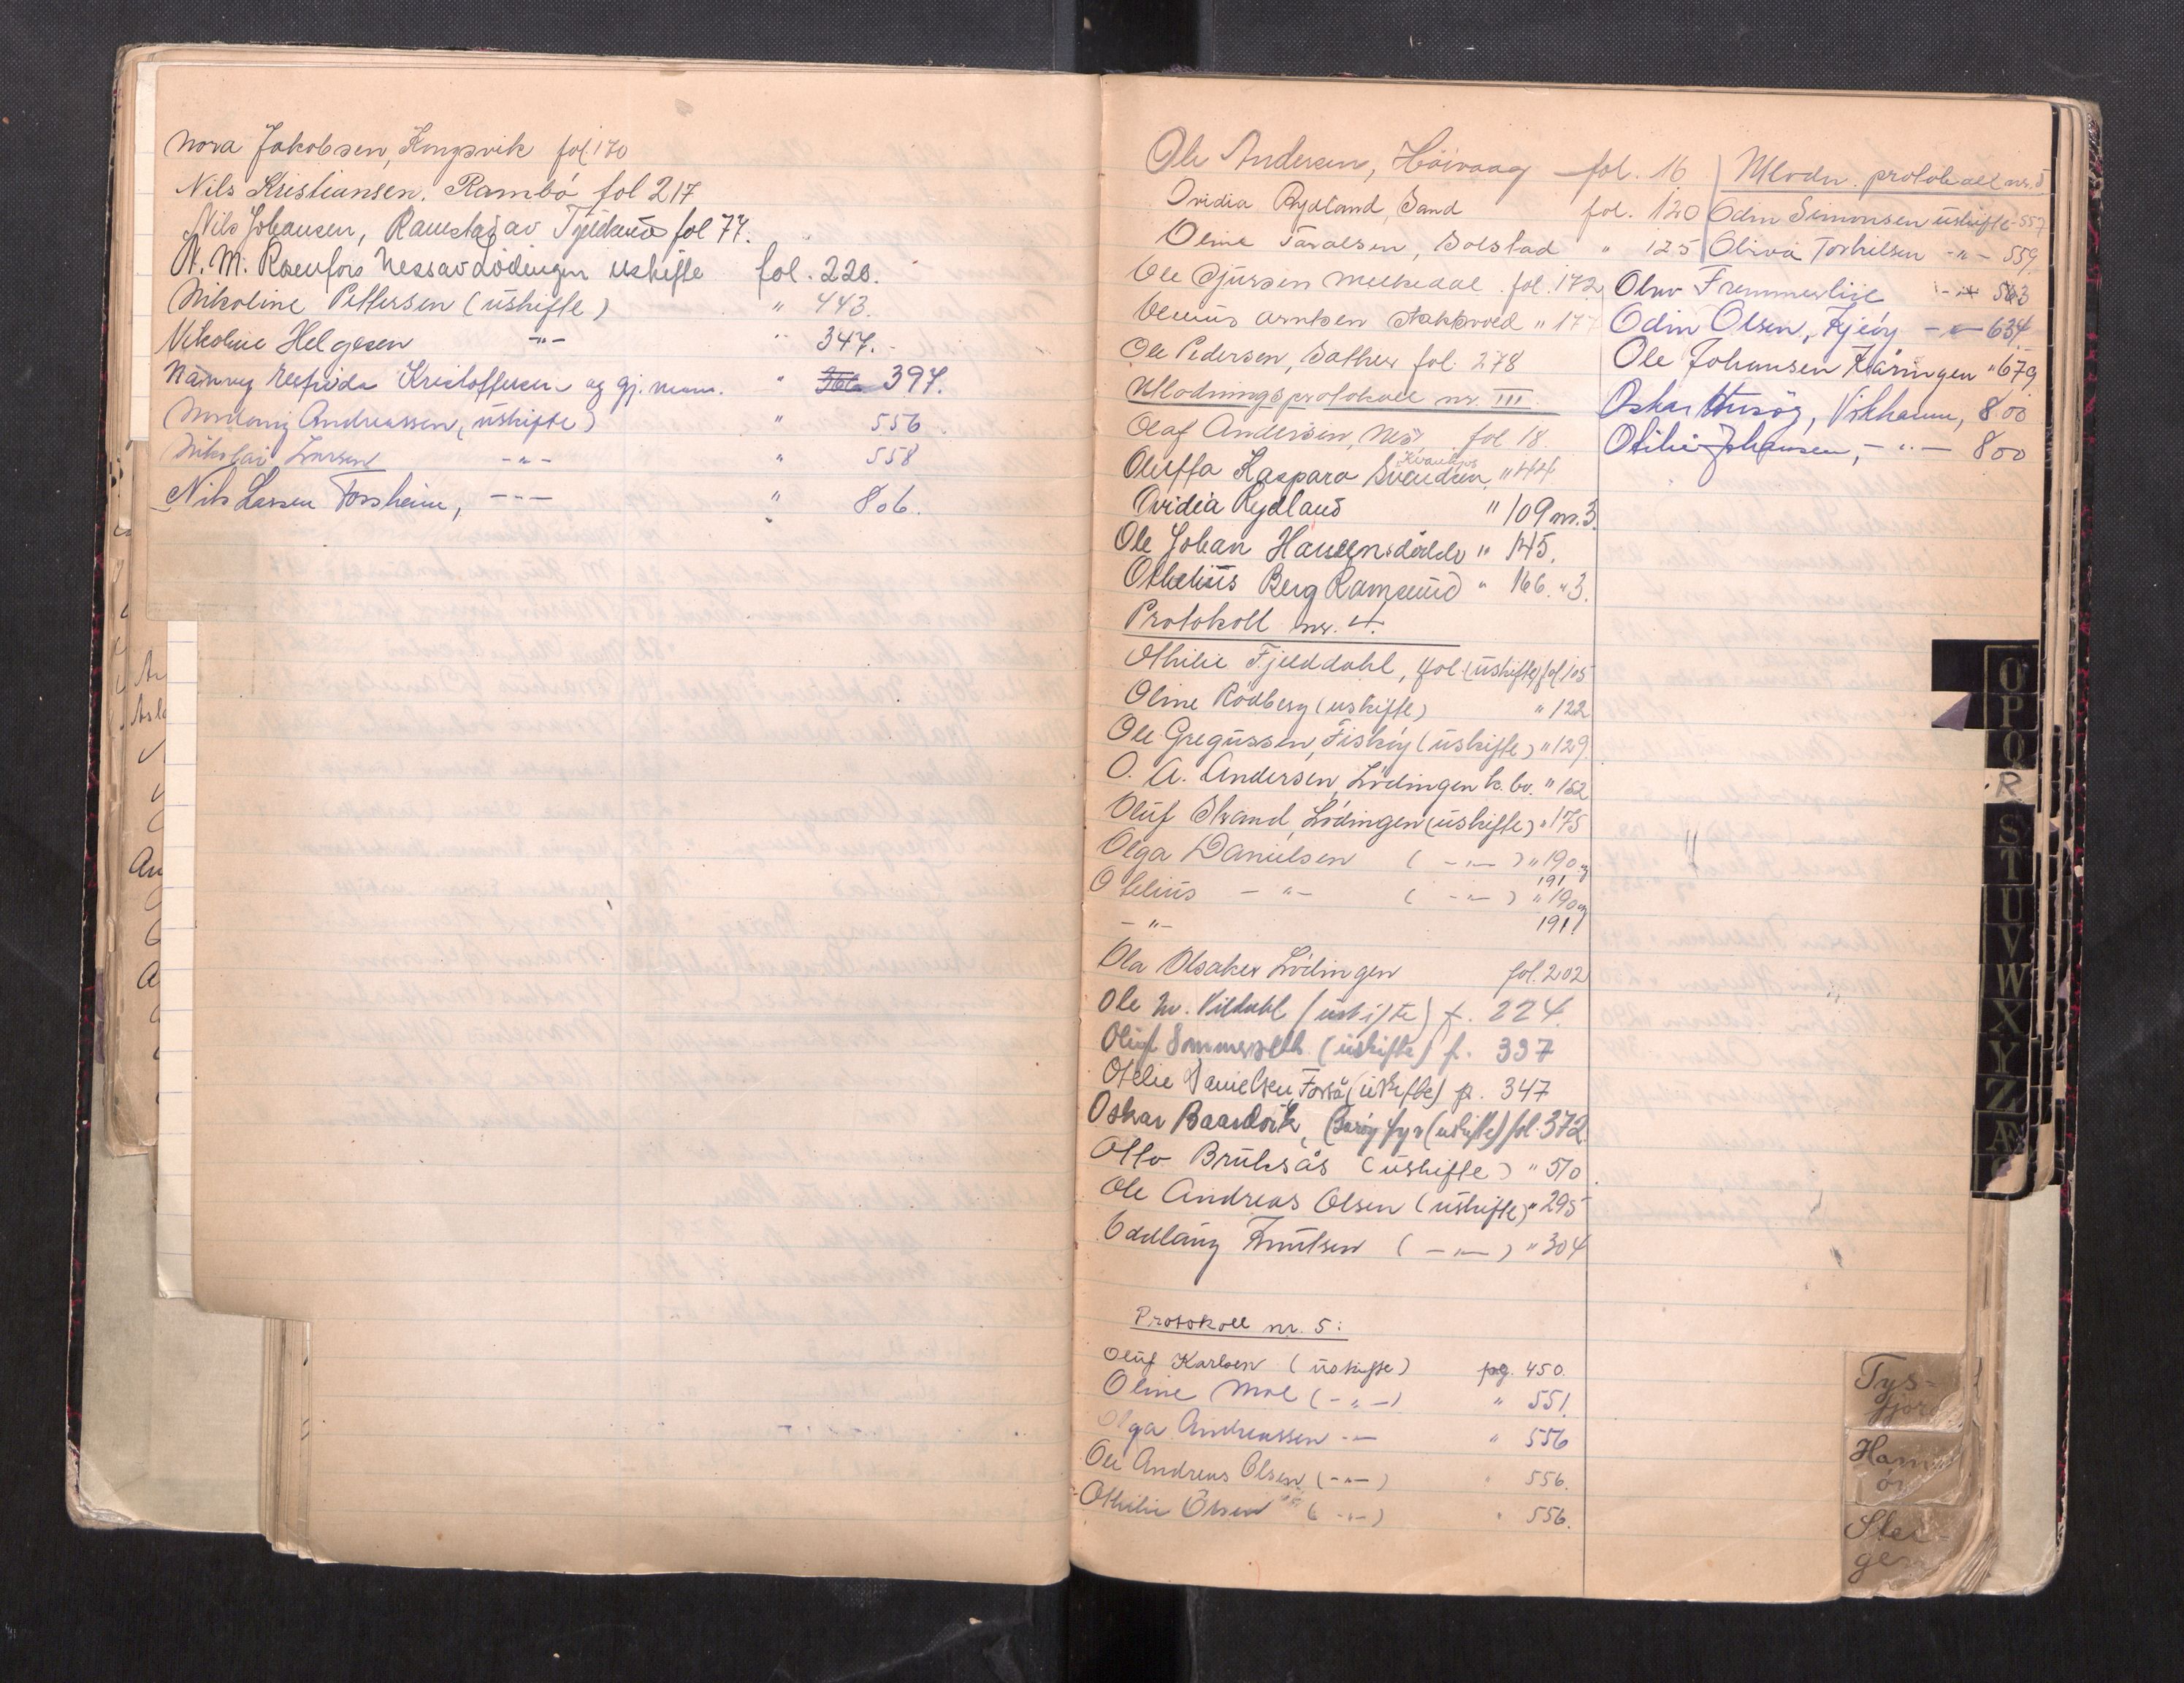 Nora Jakobsen, Kongsvik fol 170
Nils Kristiansen, Rambö fol 217
Nils Johansen, Ramstad av Tjeldsund fol 77.
N. M. Rosenfors Nessav Lödingen uskifte fol. 220.
Nikoline Pettersen (uskifte) " 443.
Nikoline Helgesen -"- " 347.
Nanny Elfrida Kristoffersen og gj. mann. " 366 397.
Nordanij Andreassen, (uskifte) " 556
Nikolai Larsen -"- " 558
Nils Larsen Forsheim, -"- " 806.
Ole Andersen, Höivaag fol. 16
Ovidia Rydland, Sand fol. 120
Oline Taralsen, Solstad " 125
Ole Sjursen Melkedal fol. 172
Olenius Arntsen Stakkvold " 177
Ole Pedersen, Sæther fol. 278
Utlodningsprotokoll nr. III.
Olaf Andersen, Nes fol 18.
Oluffa Kaspara Svendsen, " 44
Ovidia Rydland " 109 nr. 3.
Ole Johan Hansen " 145.
Othelius Berg Ramsund " 166. " 3.
Protokoll nr. 4.
Othilie Fjelddahl, fol (uskifte) fol 105
Oline Rödberg (uskifte) " 122
Ole Gregussen, Fiskøy (uskifte) " 129.
O. A. Andersen, Lödingen k. bo. " 152
Oluf Strand, Lödingen (uskifte) " 175
Olga Danielsen ( -"- ) " 190 og
191
Otelius -"- ( -"- ) " 190 og
-"- 191
Ola Olsaker Lödingen fol. 202
Ole N. Vildahl (uskifte) f. 224.
Oluf Sommerseth (uskifte) f. 337
Otelie Danielsen, Forså (uskifte) f. 347
Oskar Baardvik, Barøy fyr (uskifte) fol. 372.
Otto Bruksås (uskifte) " 510
Ole Andreas Olsen (uskifte) " 295
Oddlaug Knutsen ( -"- ) " 304
Protokoll nr. 5:
Oluf Karlsen (uskifte) pg. 450.
Oline Moe ( -"- ) " 551.
Olga Andreassen -"- " 556
Ole Andreas Olsen ( -"- ) " 556.
Othilie Olsen ( -"- ) " 556.
Utlodn. protokoll nr. 5
Odin Simonsen uskifte - 557
Oliva Torkilsen -"- 559.
Olav Fremmerlid -"- 563
Odin Olsen, Kjeöy -"- 634.
Ole Johansen Kåringen " 679
Oskar Husöy, Vikhamn, 800
Otilie Johansen, -"- 800
O
P
Q
R
S
T
U
V
W
X
Y
Z
Æ
Tys-
fjord
Hamar
öy
Stei-
gen